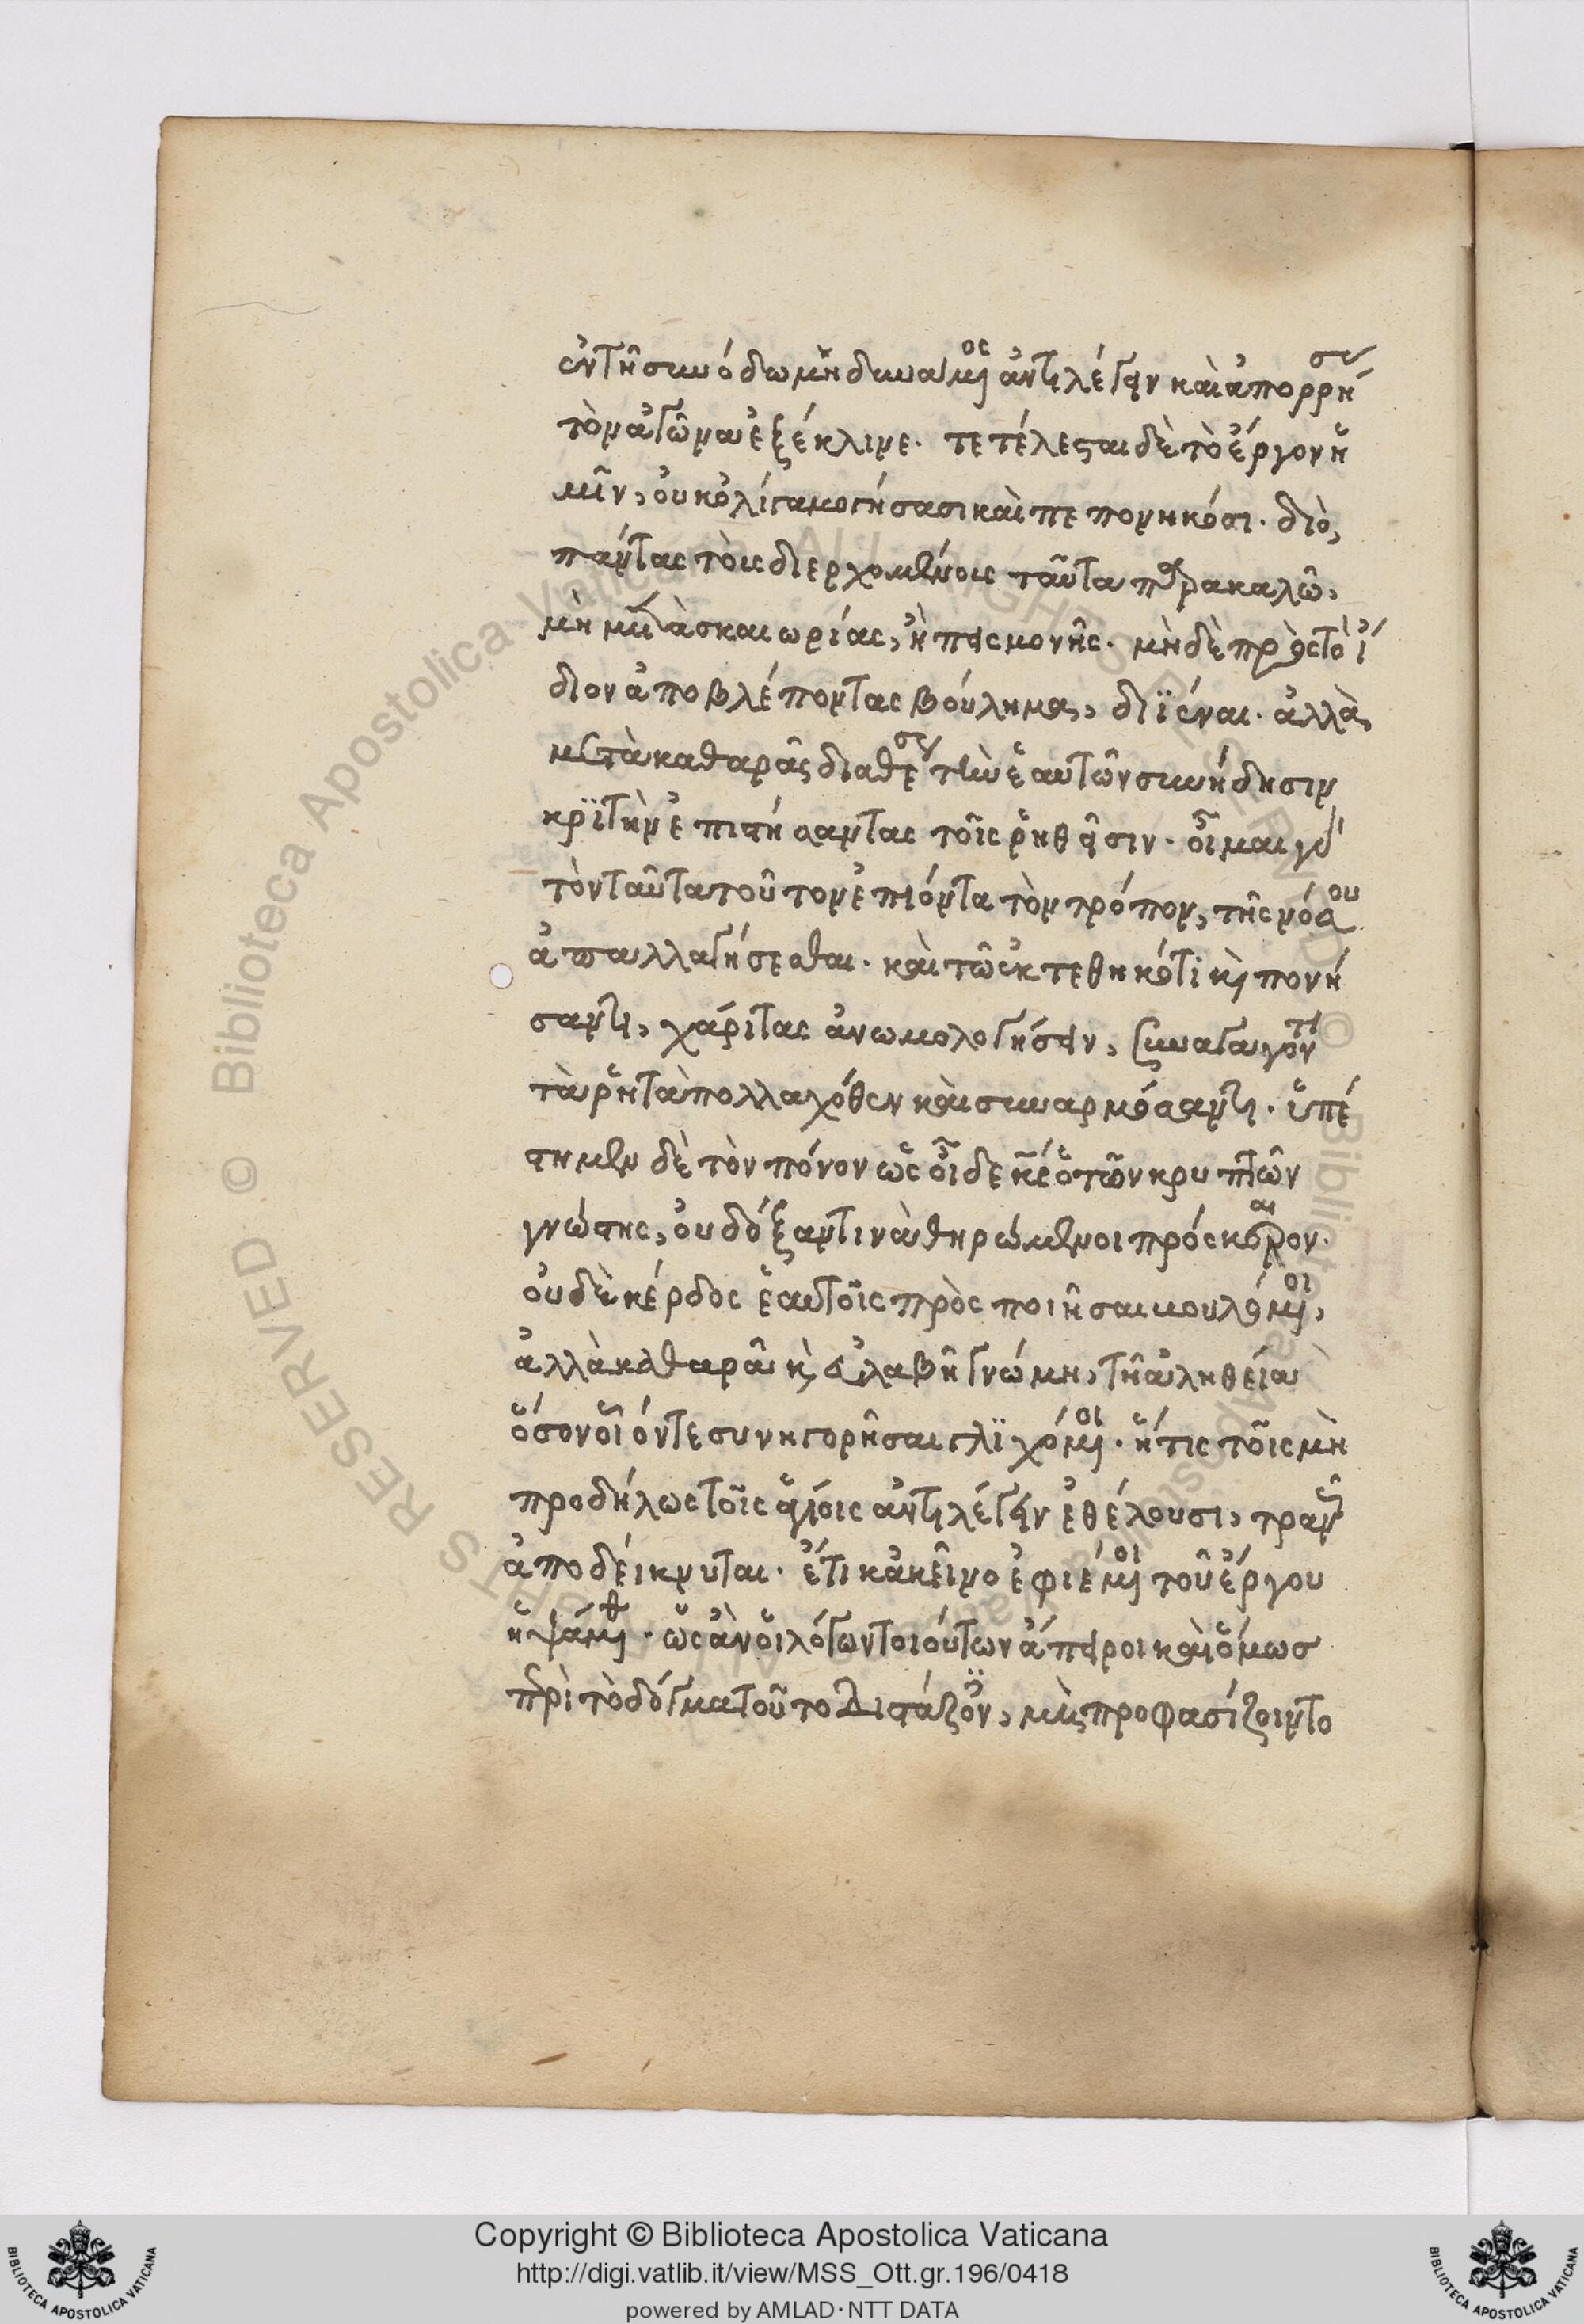 ἐν τῆ συνόδω μὴ δυνάμενος ἀντιλέγειν καὶ ἀπορρήσει
τὸν ἀγῶνα ἐξέκλινε· τετέλεσται δὲ τὸ ἔργον ἡ
μῖν, οὐκ ὀλίγα μογήσασι καὶ πεπονηκόσι· διὸ,
πάντας τοὺς διερχομένοις ταῦτα παρακαλῶ,
μὴ μετὰ σκαιωρίας, ἢ πεισμονῆς· μηδὲ πρὸς τὸ ἴ
διον ἀποβλέποντας βούλημα, διϊέναι· ἀλλὰ
μετὰ καθαρᾶς διαθέσεως τὴν ἑαυτῶν συνήδησιν
κρϊτὴν ἐπιστήσαντας τοῖς ῥηθεῖσιν· οἶμαι γὰρ
τὸν ταῦτα τοῦτον ἐπιόντα τὸν τρόπον, τῆς νόσου
ἀπαλλαγήσεσθαι· καὶ τῶ ἐκτεθηκότι καὶ πονή
σαντι, χάριτας ἀνωμολογήσειν, συναγαγόντι
τὰ ῥητὰ πολλαχόθεν καὶ συναρμόσαντι· ὑπέ
στημεν δὲ τὸν πόνον ὡς οἶδε κύριος ὁ τῶν κρυπτῶν
γνώστης, οὐ δόξαν τινὰ θηρώμενοι πρόσκαιρον·
οὐδὲ κέρδος ἑαυτοῖς προσποιῆσαι βουλόμενοι,
ἀλλὰ καθαρᾶ καὶ εὐλαβῆ γνώμη, τῆ ἀληθεία
ὅσον οἷόν τε συνηγορῆσαι γλϊχόμενοι· ἥτις τοῖς μὴ
προδήλως τοῖς ἁγίοις ἀντιλέγειν ἐθέλουσι, τρανῶς
ἀποδείκνυται· ἔτι κἀκεῖνο ἐφιέμενοι τοῦ ἔργου
ἡψάμεθα· ὡς ἂν οἱ λόγων τοιούτων ἄπειροι καὶ ὅμως
περὶ τὸ δόγμα τοῦτο διστάζοντες, μὴ προφασίζοιντο
Copyright © Biblioteca Apostolica Vaticana
http://digi.vatlib.it/view/MSS_Ott.gr.196/0418
powered by AMLAD·NTT DATA